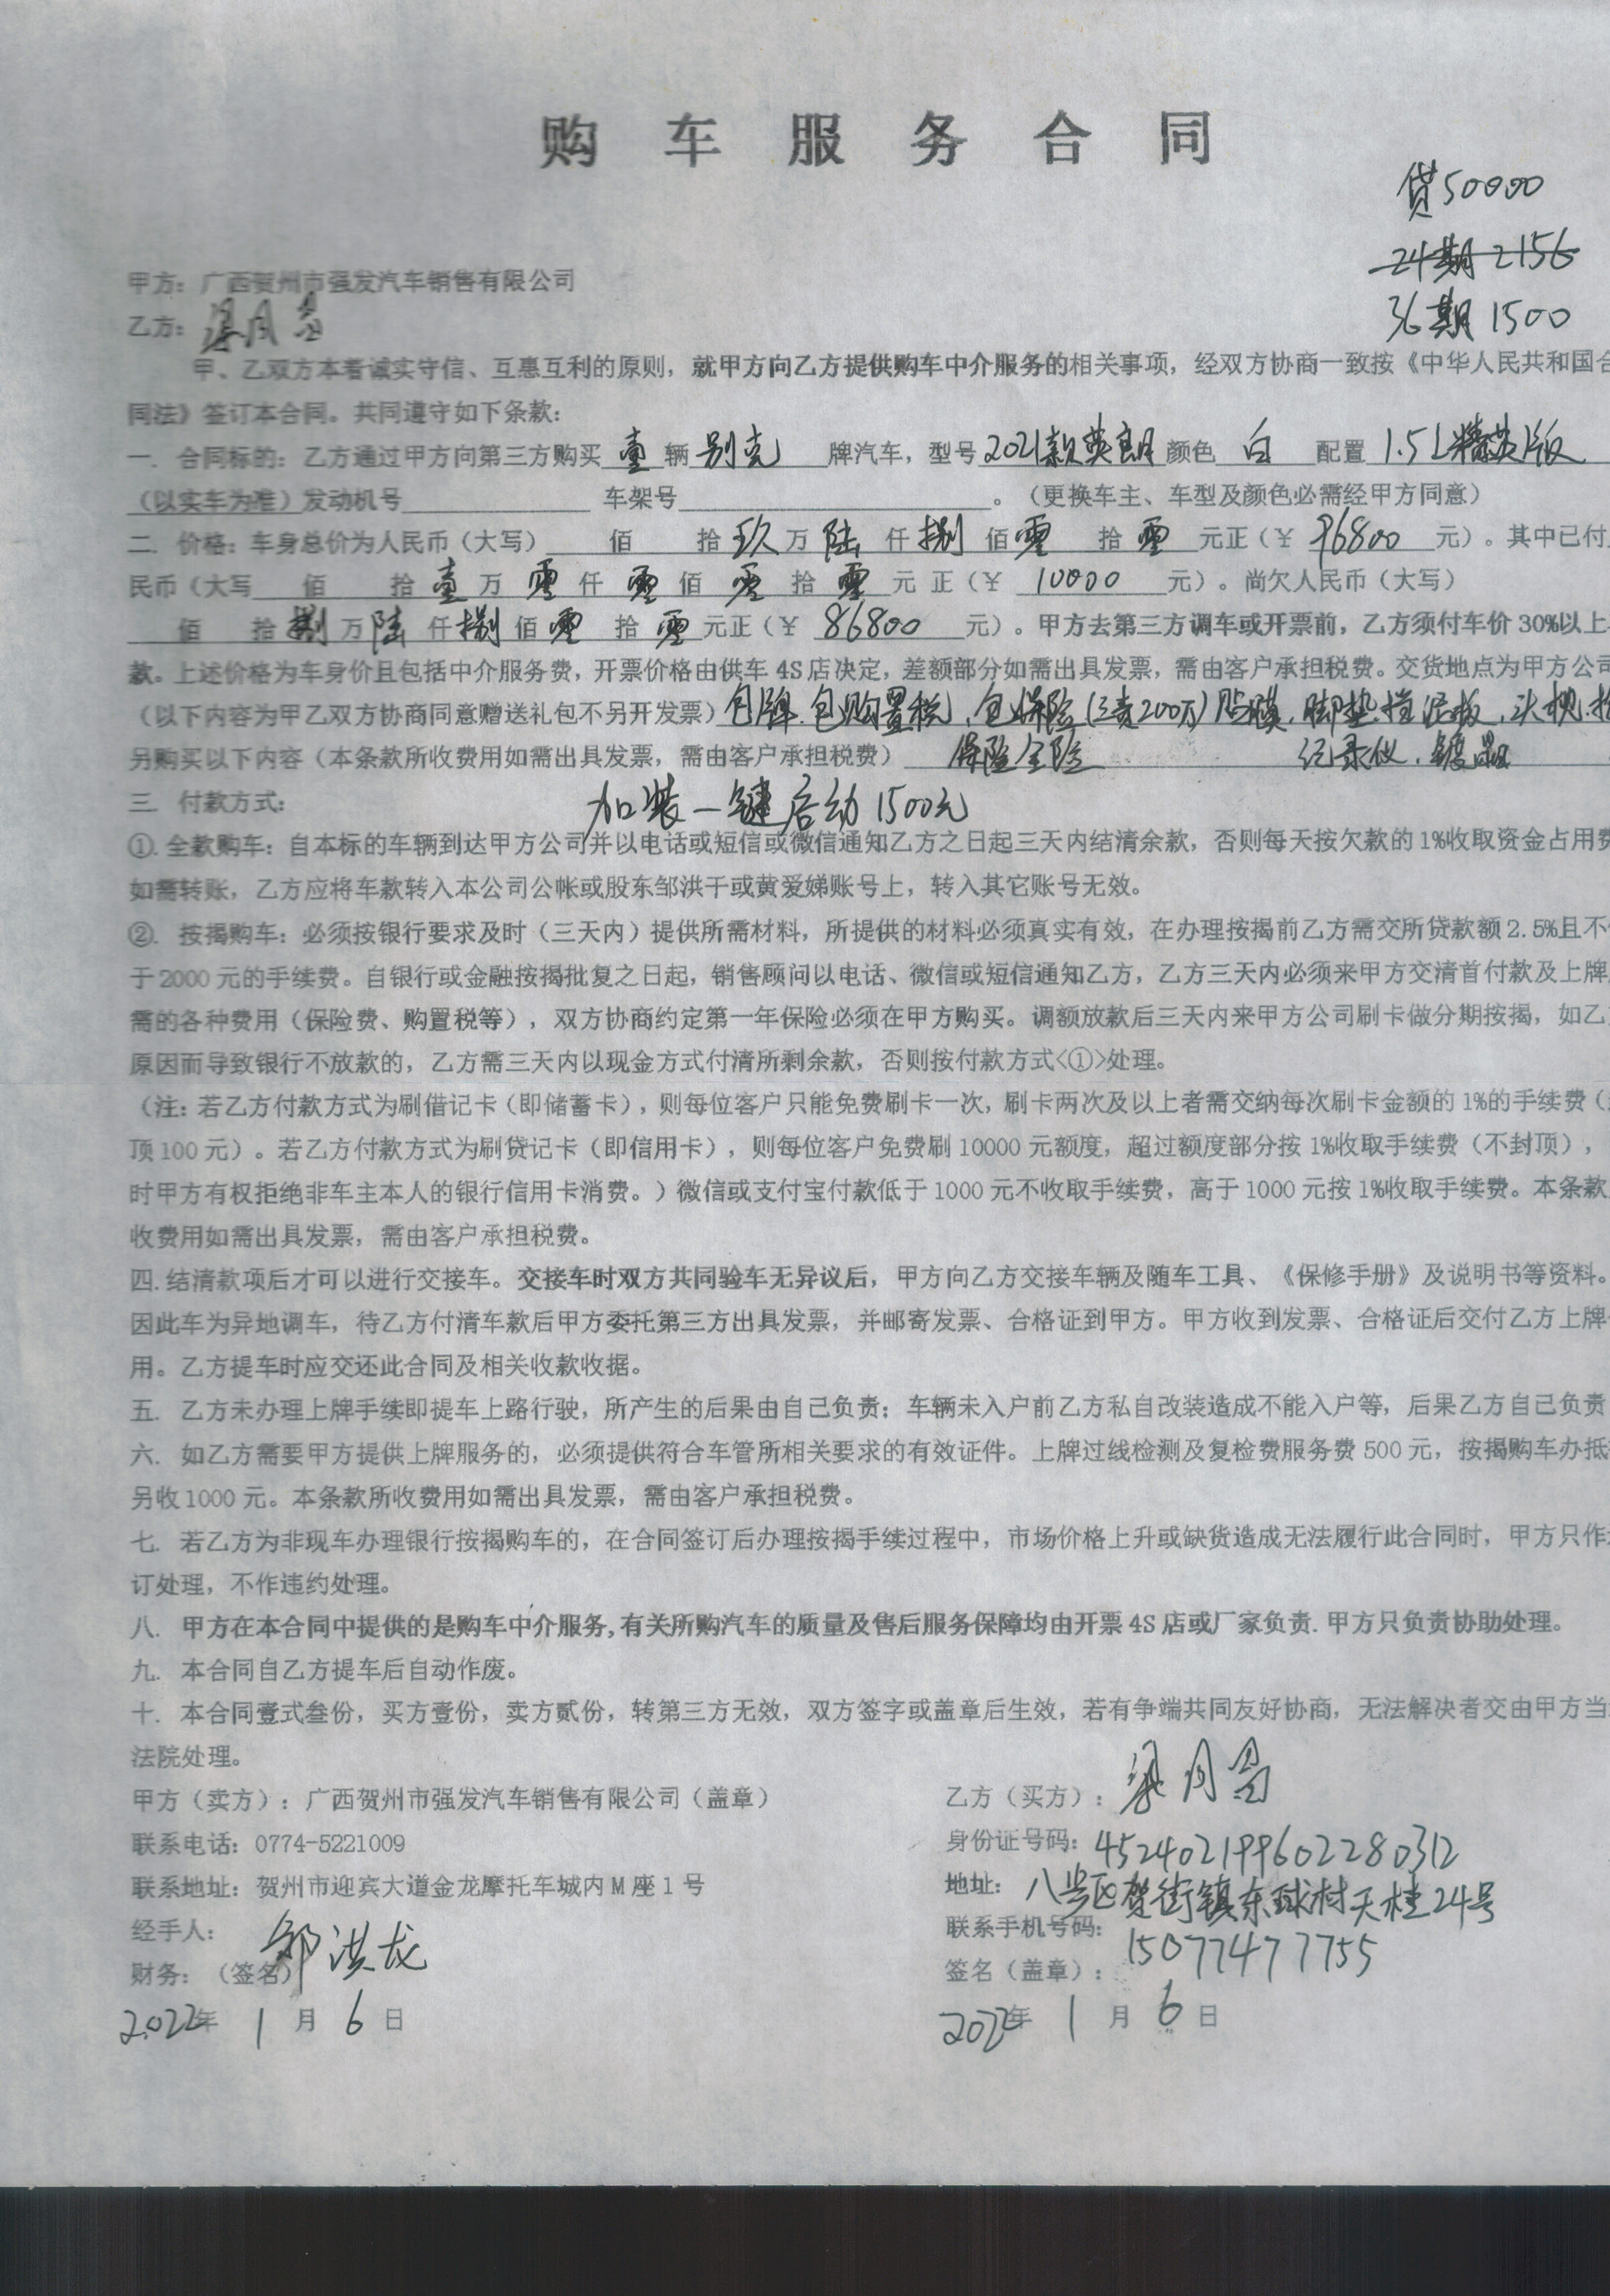 购车服务合同
贷50000
24期2156
36期1500
甲方：广西贺州市强发汽车销售有限公司
乙方：
甲、乙双方本着诚实守信、互惠互利的原则，就甲方向乙方提供购车中介服务的相关事项，经双方协商一致按《中华人民共和国合
同法》签订本合同。共同遵守如下条款：
一. 合同标的：乙方通过甲方向第三方购买 壹 辆 别克 牌汽车，型号 2021款英朗 颜色 白 配置 1.5L精英版
（以实车为准）发动机号 车架号 。（更换车主、车型及颜色必需经甲方同意）
二. 价格：车身总价为人民币（大写） 佰 拾 玖 万 陆 仟 捌 佰 零 拾 零 元正（￥ 96800 元）。其中已付
民币（大写 佰 拾 壹 万 零 仟 零 佰 零 拾 零 元 正（￥ 10000 元）。尚欠人民币（大写）
佰 拾 捌 万 陆 仟 捌 佰 零 拾 零 元正（￥ 86800 元）。甲方去第三方调车或开票前，乙方须付车价 30%以上
款。上述价格为车身价且包括中介服务费，开票价格由供车 4S 店决定，差额部分如需出具发票，需由客户承担税费。交货地点为甲方公司
（以下内容为甲乙双方协商同意赠送礼包不另开发票）包牌.包购置税，包保险(三责200万)贴膜.脚垫.挡泥板.头枕.
另购买以下内容（本条款所收费用如需出具发票，需由客户承担税费） 保险全险 记录仪.镀晶
三. 付款方式： 加装一键启动1500元
①. 全款购车：自本标的车辆到达甲方公司并以电话或短信或微信通知乙方之日起三天内结清余款，否则每天按欠款的 1%收取资金占用费
如需转账，乙方应将车款转入本公司公帐或股东邹洪干或黄爱娣账号上，转入其它账号无效。
②. 按揭购车：必须按银行要求及时（三天内）提供所需材料，所提供的材料必须真实有效，在办理按揭前乙方需交所贷款额 2.5%且不
于 2000 元的手续费。自银行或金融按揭批复之日起，销售顾问以电话、微信或短信通知乙方，乙方三天内必须来甲方交清首付款及上牌
需的各种费用（保险费、购置税等），双方协商约定第一年保险必须在甲方购买。调额放款后三天内来甲方公司刷卡做分期按揭，如乙
原因而导致银行不放款的，乙方需三天内以现金方式付清所剩余款，否则按付款方式<①>处理。
（注：若乙方付款方式为刷借记卡（即储蓄卡），则每位客户只能免费刷卡一次，刷卡两次及以上者需交纳每次刷卡金额的 1%的手续费（
顶 100 元）。若乙方付款方式为刷贷记卡（即信用卡），则每位客户免费刷 10000 元额度，超过额度部分按 1%收取手续费（不封顶），
时甲方有权拒绝非车主本人的银行信用卡消费。）微信或支付宝付款低于 1000 元不收取手续费，高于 1000 元按 1%收取手续费。本条款
收费用如需出具发票，需由客户承担税费。
四. 结清款项后才可以进行交接车。交接车时双方共同验车无异议后，甲方向乙方交接车辆及随车工具、《保修手册》及说明书等资料。
因此车为异地调车，待乙方付清车款后甲方委托第三方出具发票，并邮寄发票、合格证到甲方。甲方收到发票、合格证后交付乙方上牌
用。乙方提车时应交还此合同及相关收款收据。
五. 乙方未办理上牌手续即提车上路行驶，所产生的后果由自己负责；车辆未入户前乙方私自改装造成不能入户等，后果乙方自己负责
六. 如乙方需要甲方提供上牌服务的，必须提供符合车管所相关要求的有效证件。上牌过线检测及复检费服务费 500 元，按揭购车办抵
另收 1000 元。本条款所收费用如需出具发票，需由客户承担税费。
七. 若乙方为非现车办理银行按揭购车的，在合同签订后办理按揭手续过程中，市场价格上升或缺货造成无法履行此合同时，甲方只作
订处理，不作违约处理。
八. 甲方在本合同中提供的是购车中介服务,有关所购汽车的质量及售后服务保障均由开票 4S 店或厂家负责. 甲方只负责协助处理。
九. 本合同自乙方提车后自动作废。
十. 本合同壹式叁份，买方壹份，卖方贰份，转第三方无效，双方签字或盖章后生效，若有争端共同友好协商，无法解决者交由甲方当
法院处理。
甲方（卖方）：广西贺州市强发汽车销售有限公司（盖章）
乙方（买方）：
联系电话：0774-5221009
身份证号码：452402199602280312
联系地址：贺州市迎宾大道金龙摩托车城内 M 座 1 号
地址：八步区贺街镇东球村天桂24号
经手人：邹洪龙
联系手机号码：15077477755
财务：（签名）
签名（盖章）：
2022年 1 月 6 日
2022年 1 月 6 日